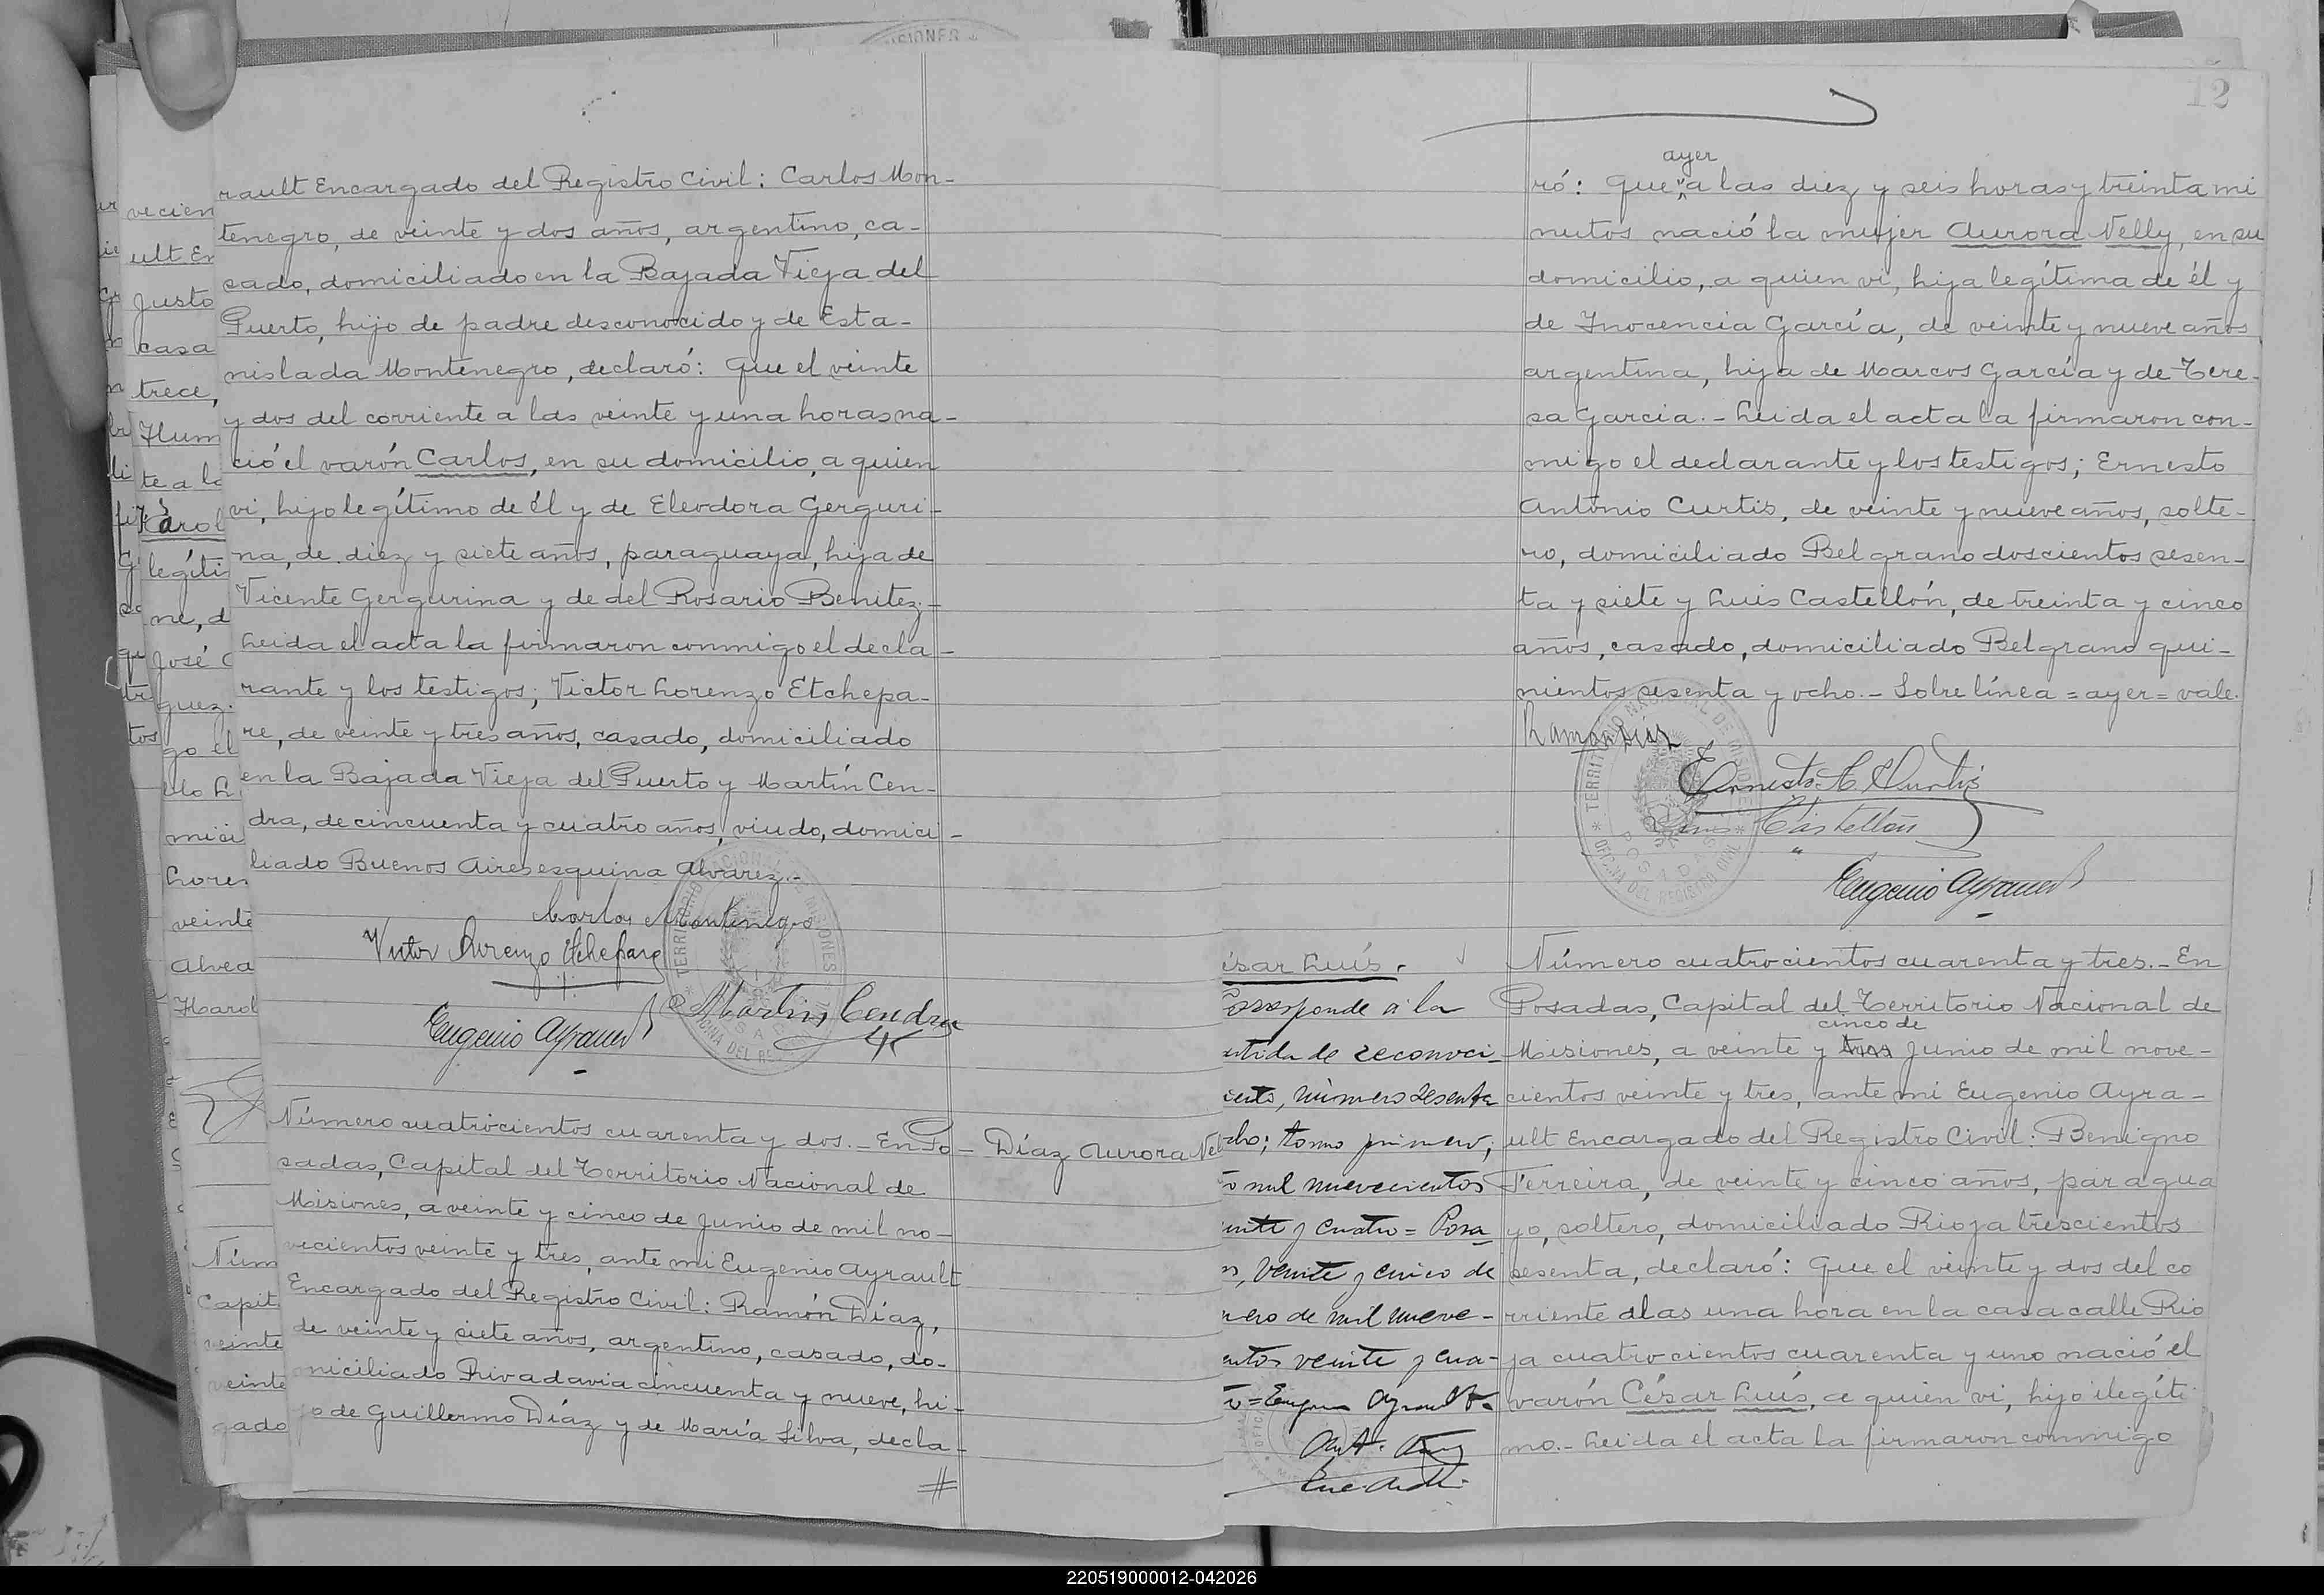 rault Encargado del Registro Civil: Carlos Mon-
tenegro, de veinte y dos años, argentino, ca-
sado, domiciliado en la Bajada Vieja del
Puerto, hijo de padre desconocido y de Esta-
nislada Montenegro, declaró: Que el veinte
y dos del corriente a las veinte y una horas na-
ció el varón Carlos, en su domicilio, a quien
vi, hijo legítimo de él y de Eleodora Gerguri-
na, de diez y siete años, paraguaya, hija de
Vicente Gergurina y de del Rosario Benitez.-
Leida el acta la firmaron conmigo el decla-
rante y los testigos; Victor Lorenzo Etchepa-
re, de veinte y tres años, casado, domiciliado
en la Bajada Vieja del Puerto y Martín Cen-
dra, de cincuenta y cuatro años, viudo, domici-
liado Buenos Aires esquina Alvarez.-
Carlos Montenegro
Victor Lorenzo Etchepare
Martin Cendra
Eugenio Ayrault
Número cuatrocientos cuarenta y dos.- En Po-
sadas, Capital del Territorio Nacional de
Misiones, a veinte y cinco de Junio de mil no-
vecientos veinte y tres, ante mi Eugenio Ayrault
Encargado del Registro Civil: Ramón Díaz,
de veinte y siete años, argentino, casado, do-
miciliado Rivadavia cincuenta y nueve, hi-
jo de Guillermo Díaz y de María Silva, decla-
Díaz Aurora Nel
12
ayer
ró: Que a las diez y seis horas y treinta mi
nutos nació la mujer Aurora Nelly, en su
domicilio, a quien vi, hija legítima de él y
de Inocencia García, de veinte y nueve años
argentina, hija de Marcos García y de Tere-
sa García.- Leida el acta la firmaron con-
migo el declarante y los testigos; Ernesto
Antonio Curtis, de veinte y nueve años, solte-
ro, domiciliado Belgrano doscientos sesen-
ta y siete y Luis Castellón, de treinta y cinco
años, casado, domiciliado Belgrano qui-
nientos sesenta y ocho.- Sobre línea = ayer = vale.
Ramon Díaz
Ernesto A. Curtis
Luis Castellón
Eugenio Ayrault
TERRITORIO NACIONAL DE MISIONES
POSADAS
OFICINA DEL REGISTRO CIVIL
ésar Luís.
orresponde a la
artida de reconoci-
iento, número sesenta
cho; tomo primero;
o mil nuevecientos
einte y cuatro = Posa
s, Veinte y cinco de
nero de mil nueve-
entos veinte y cua-
o = Eugenio Ayrault.
Número cuatrocientos cuarenta y tres.- En
Posadas, Capital del Territorio Nacional de
cinco de
Misiones, a veinte y tres Junio de mil nove-
cientos veinte y tres, ante mi Eugenio Ayra-
ult Encargado del Registro Civil: Benigno
Ferreira, de veinte y cinco años, paragua
yo, soltero, domiciliado Rioja trescientos
sesenta, declaró: Que el veinte y dos del co
rriente a las una hora en la casa calle Rio
ja cuatrocientos cuarenta y uno nació el
varón César Luís, a quien vi, hijo ilegíti
mo.- Leida el acta la firmaron conmigo
220519000012-042026